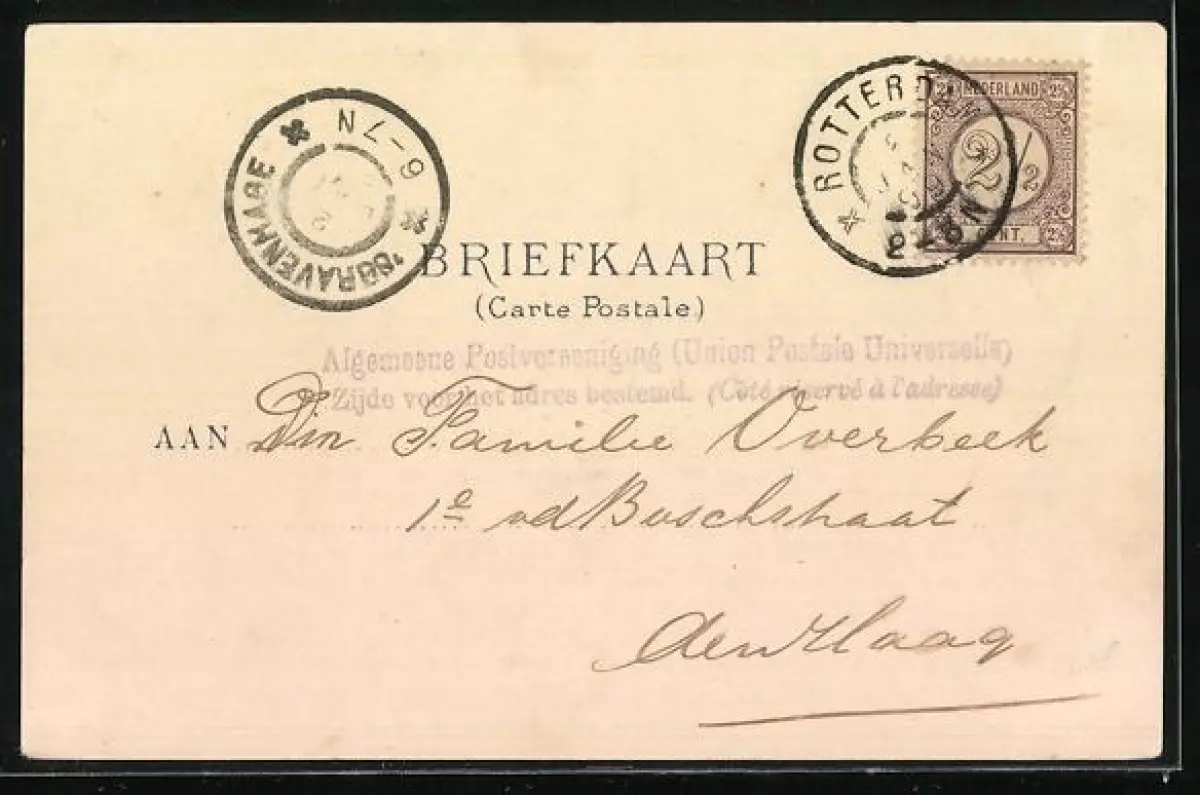 6-7N
'SGRAVENHAGE
ROTTERDAM
2½ NEDERLAND 2½
2½
2½ CENT. 2½
BRIEFKAART
(Carte Postale.)
Algemeene Postvereeniging (Union Postale Universelle)
Zijde voor het adres bestemd. (Côté réservé à l'adresse)
AAN Familie Overbeek
1e vd Boschstraat
den Haag